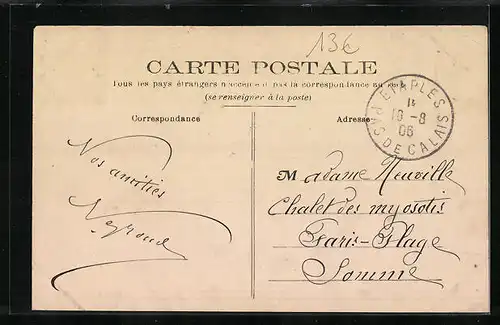 13€
CARTE POSTALE
Tous les pays étrangers n'acceptent pas la correspondance au
(se renseigner à la poste)
Correspondance
Adresse
ETAPLES
10-8
06
PAS DE CALAIS
Nos amitiés
Madame Neuville
Chalet des myosotis
Paris-Plage
Somme